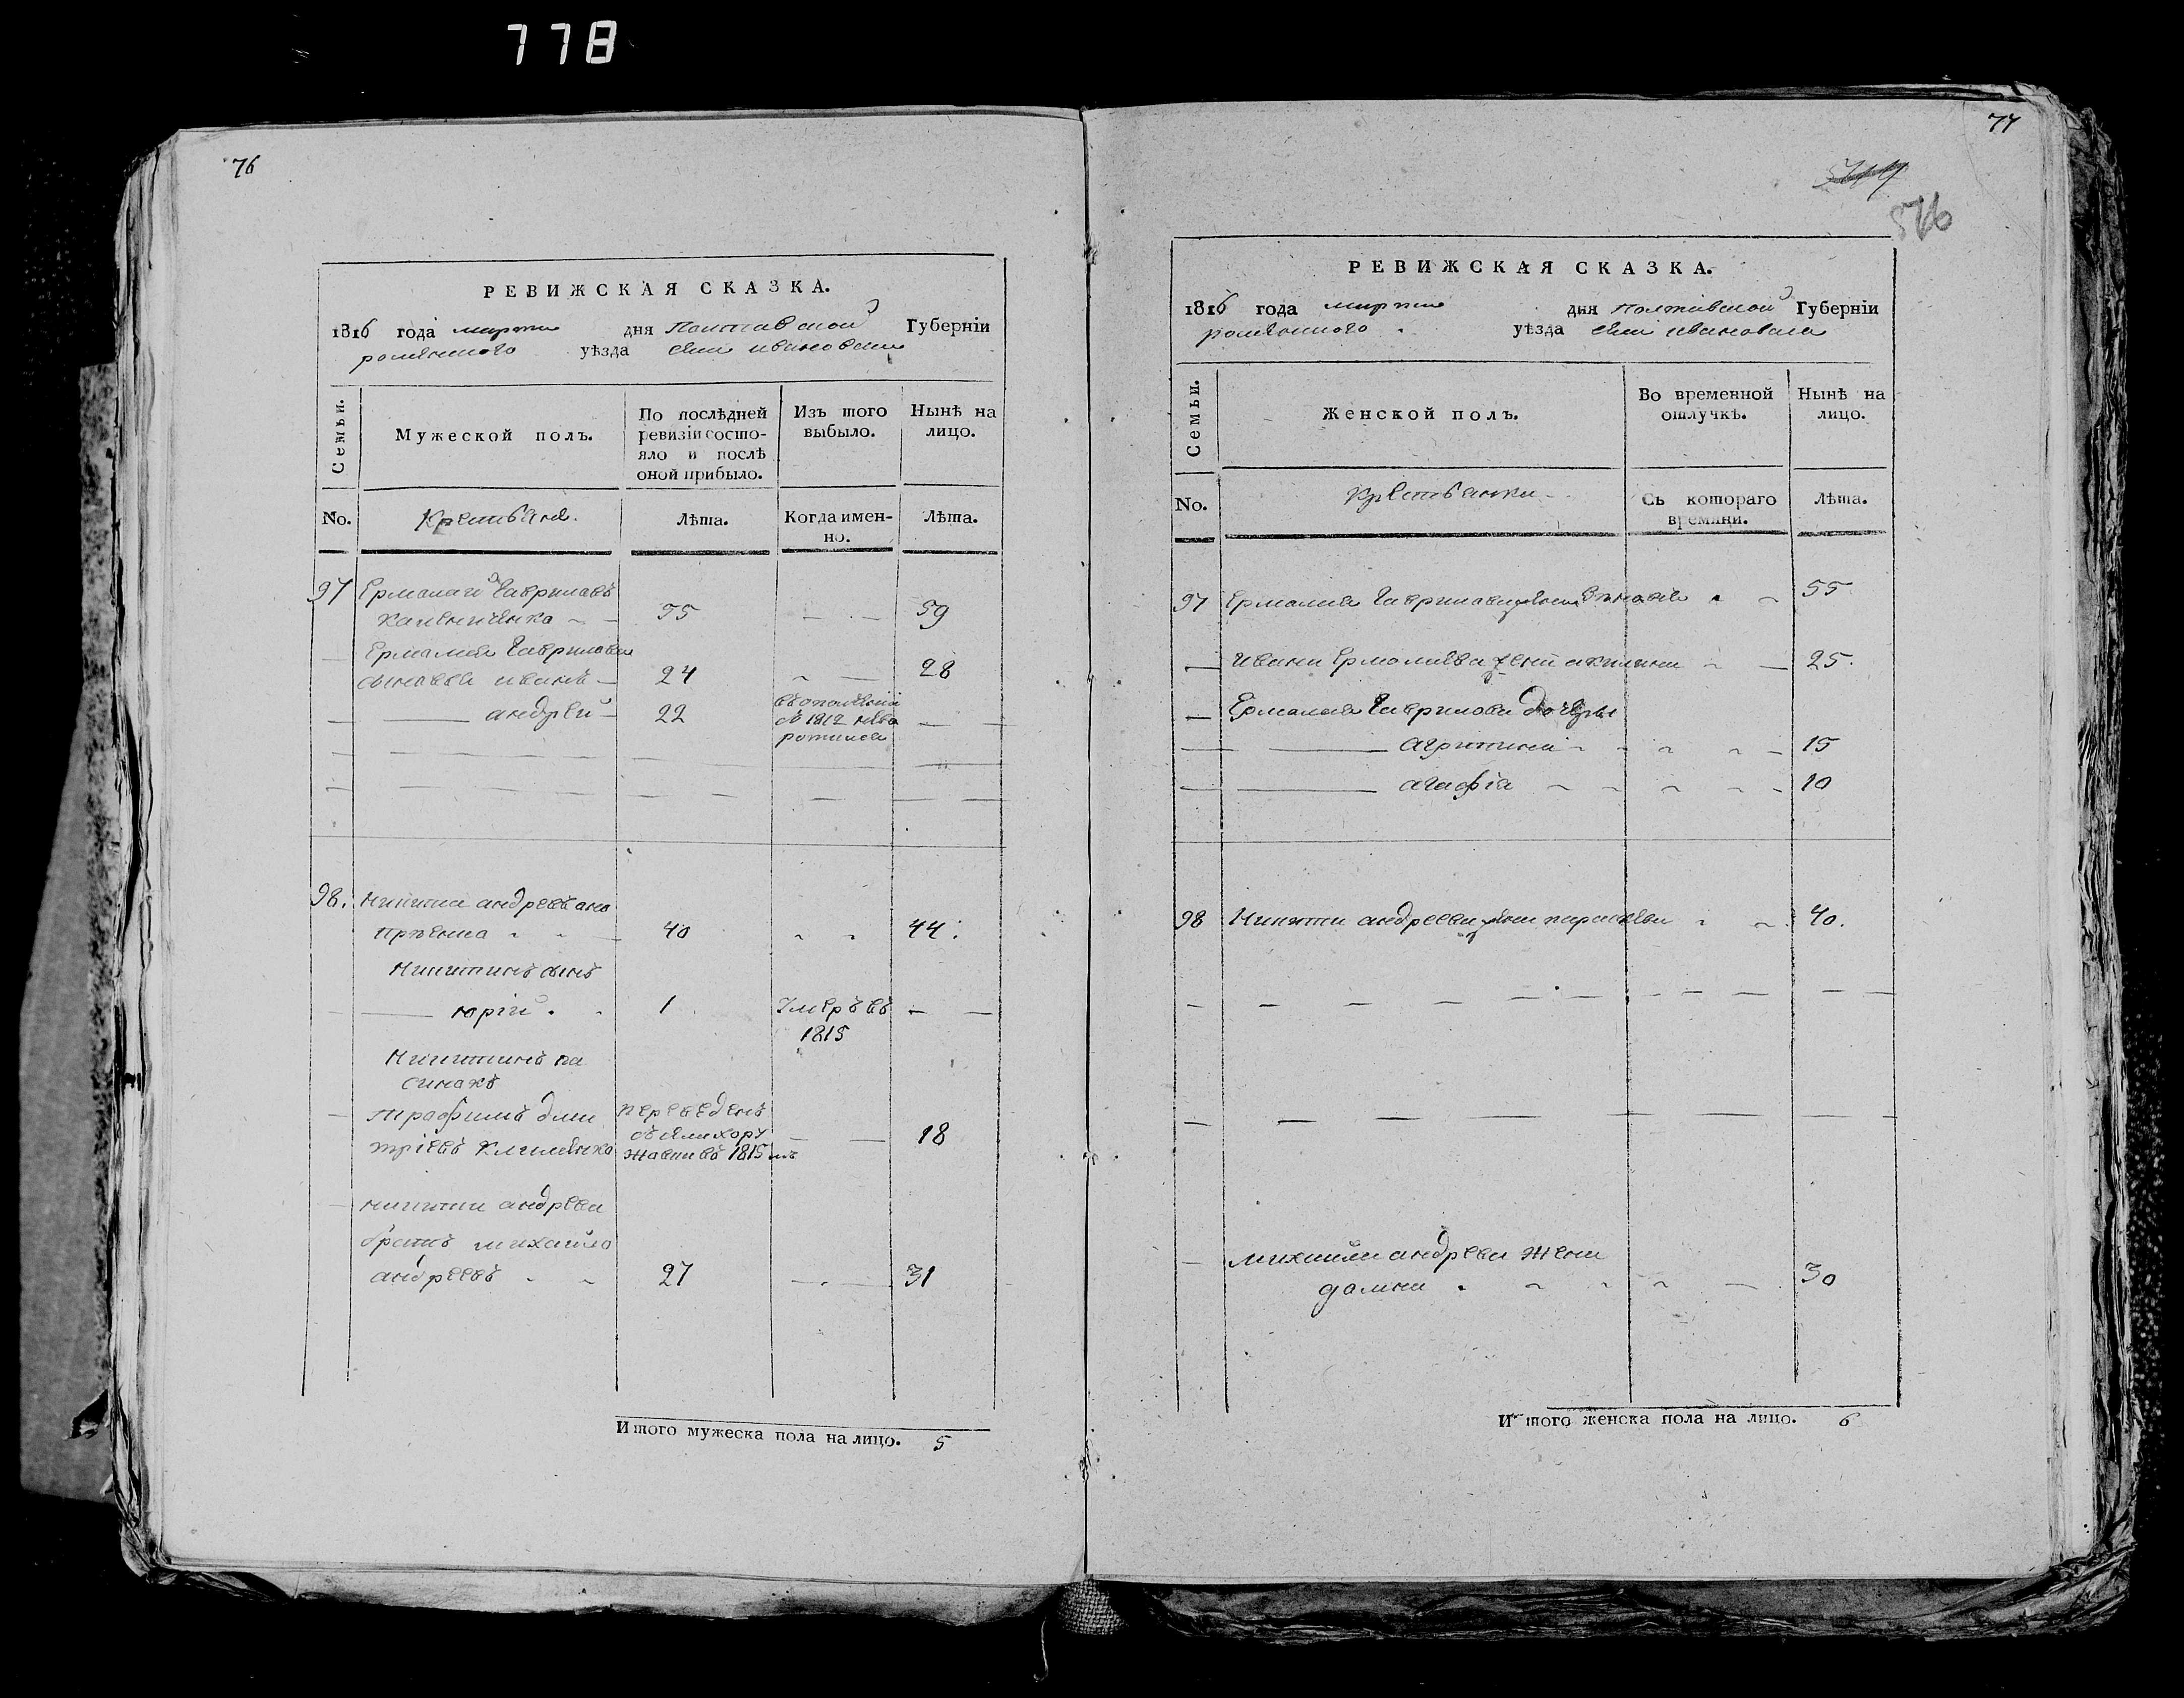 778
76
РЕВИЖСКАЯ СКАЗКА.
1816 года марта дня Полтавской Губерніи
роменского уѣзда села ивановки
Семьи.
Мужеской полъ.
По послѣдней ревизіи состояло и послѣ оной прибыло.
Изъ того выбыло.
Нынѣ на лицо.
No.
Крестьяне.
Лѣта.
Когда именно.
Лѣта.
97 Ермолай Гавриловъ
55 59
Ермолая Гаврилова
сыновья иванъ 24 28
андрей 22
въ ополченіи
съ 1812 нево
ротился
98. Никита андреевъ
40 44
Никитинъ сынъ
юрій 1 Умеръ въ
1815
Никитинъ па
синокъ
трофимъ дми
тріевъ Клименко
переведенъ
въ 1815
18
никиты андреева
братъ михайло
андреевъ 27 31
Итого мужеска пола на лицо. 5
77
576
РЕВИЖСКАЯ СКАЗКА.
1816 года марта дня Полтавской Губерніи
роменского уѣзда села ивановки
Семьи.
Женской полъ.
Во временной отлучкѣ.
Нынѣ на лицо.
No.
Крестьянки
Съ котораго времяни.
Лѣта.
97 Ермолая Гаврилова жена 55
ивана Ермолаева жена акилина 25.
Ермолая Гаврилова дочери
агрипина 15
агафія 10
98 Никиты андреева жена параскева 40.
михайла андреева жена
домна 30
Итого женска пола на лицо. 6